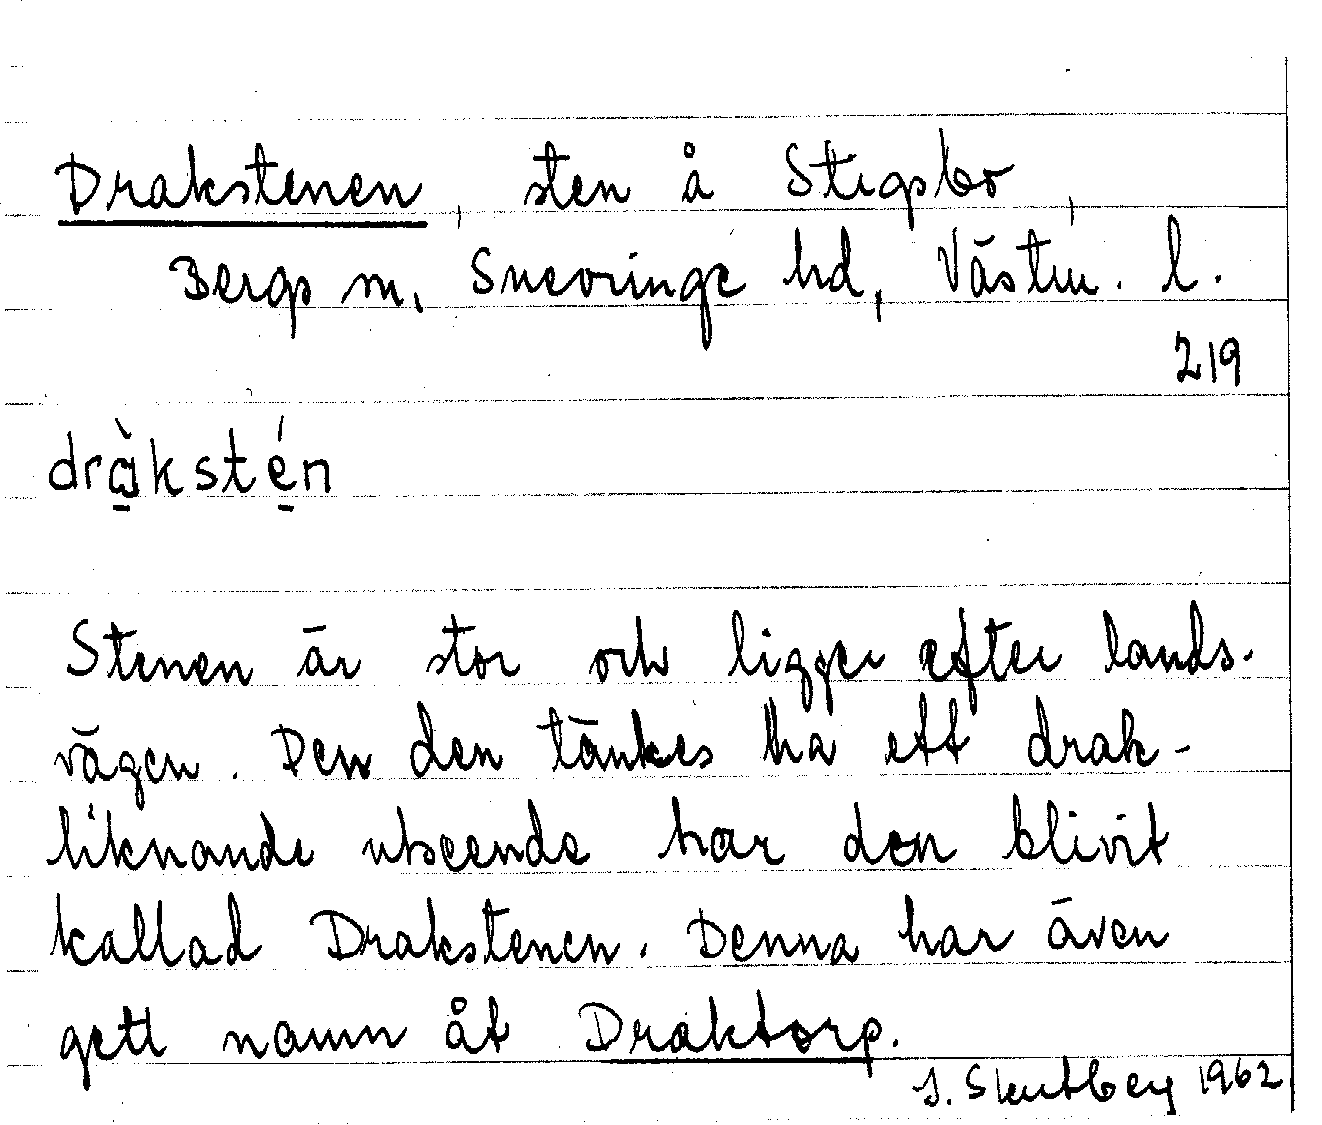 Drakstenen, sten å Stigsbo,
Bergs sn, Snevringe hd, Västm. l.
219
drà̱ksté̱n
Stenen är stor och ligger efter lands-
vägen. Den den tänkes ha ett drak-
liknande utseende har den blivit
kallad Drakstenen. Denna har även
gett namn åt Draktorp.
1962